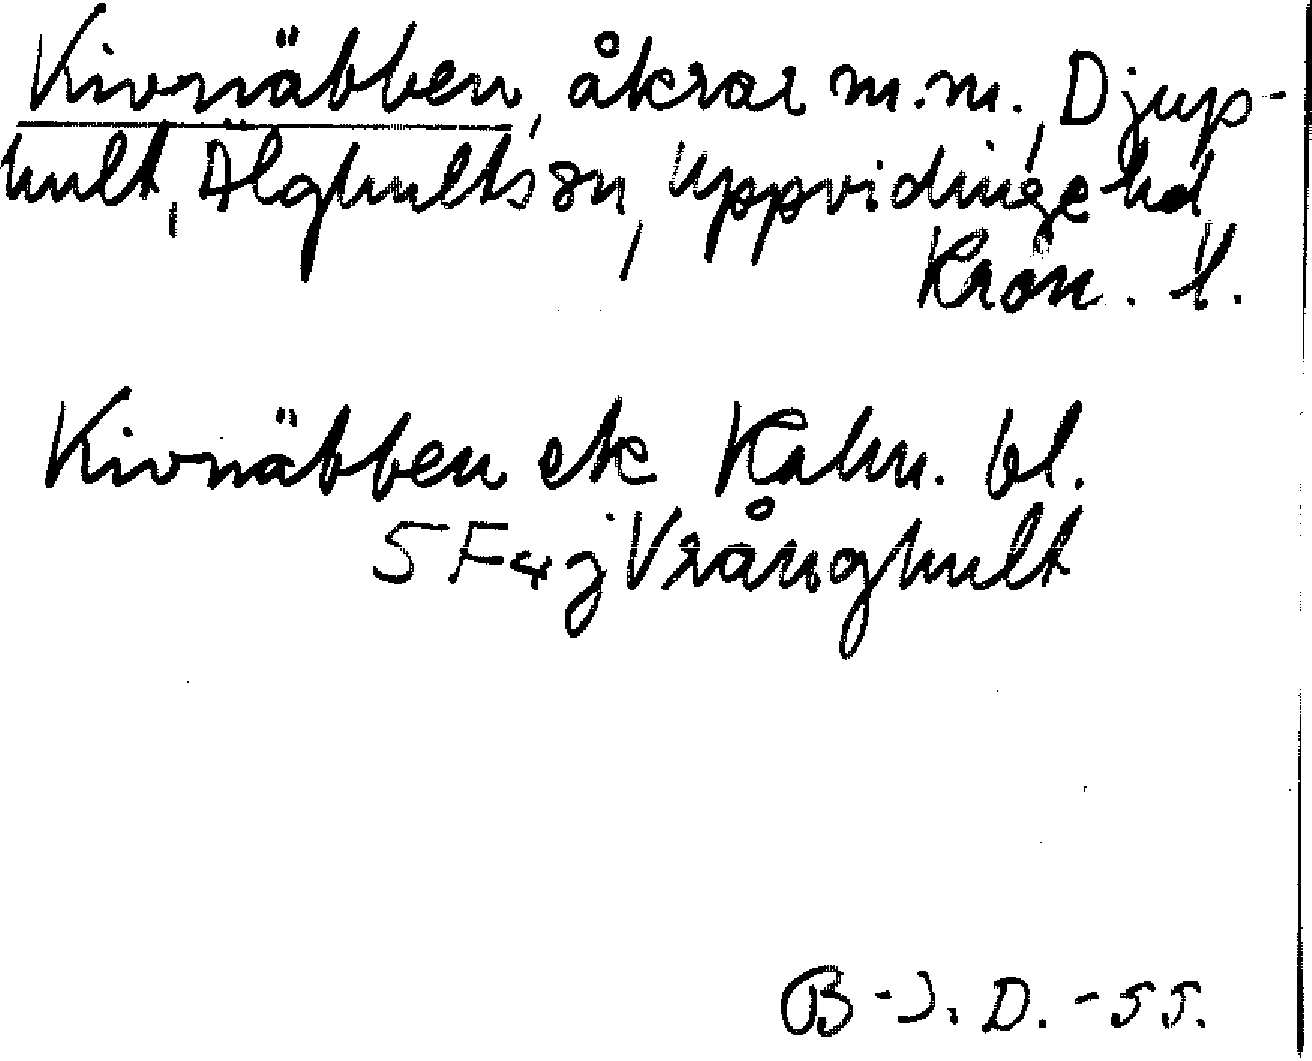 Kivnäbben, åkrar m.m., Djup-
hult, Älghults sn, Uppvidinge hd,
Kron. l.
Kivnäbben ek Kahn. bl.
5F4j Vrånghult
B-J. D. -55.